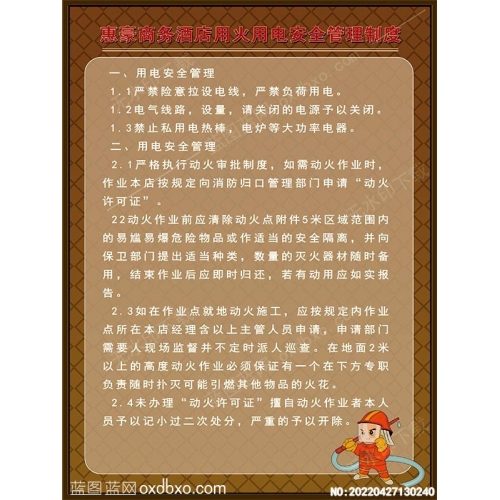 惠豪商务酒店用火用电安全管理制度
一、用电安全管理
1.1严禁险意拉设电线，严禁负荷用电。
1.2电气线路，设量，请关闭的电源予以关闭。
1.3禁止私用电热棒，电炉等大功率电器。
二、用电安全管理
2.1严格执行动火审批制度，如需动火作业时，
作业本店按规定向消防归口管理部门申请“动火
许可证”。
22动火作业前应清除动火点附件5米区域范围内
的易尴易爆危险物品或作适当的安全隔离，并向
保卫部门提出适当种类，数量的灭火器材随时备
用，结束作业后应即时归还，若有动用应如实报
告。
2.3如在作业点就地动火施工，应按规定内作业
点所在本店经理含以上主管人员申请，申请部门
需要人现场监督并不定时派人巡查。在地面2米
以上的高度动火作业必须保证有一个在下方专职
负责随时扑灭可能引燃其他物品的火花。
2.4未办理“动火许可证”擅自动火作业者本人
员予以记小过二次处分，严重的予以开除。
蓝图蓝网oxdbxo.com
NO:20220427130240